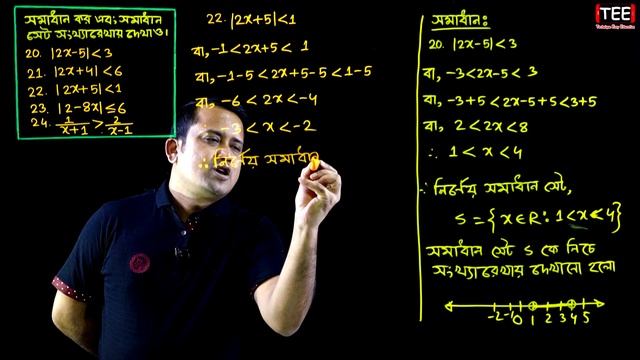 সমাধান কর এবং সমাধান
সেট সংখ্যারেখায় দেখাও।
20. |2x-5| < 3
21. |2x+4| < 6
22. |2x+5| < 1
23. |2-8x| ≤ 6
24. 1/(x+1) > 2/(x-1)
22. |2x+5| < 1
বা, -1 < 2x+5 < 1
বা, -1-5 < 2x+5-5 < 1-5
বা, -6 < 2x < -4
∴ -3 < x < -2
∴ নির্ণেয় সমাধান
TEE
সমাধান:
20. |2x-5| < 3
বা, -3 < 2x-5 < 3
বা, -3+5 < 2x-5+5 < 3+5
বা, 2 < 2x < 8
∴ 1 < x < 4
∴ নির্ণেয় সমাধান সেট,
S = {x∈R: 1 < x < 4}
সমাধান সেট S কে নিচে
সংখ্যারেখায় দেখানো হলো
-2 -1 0 1 2 3 4 5